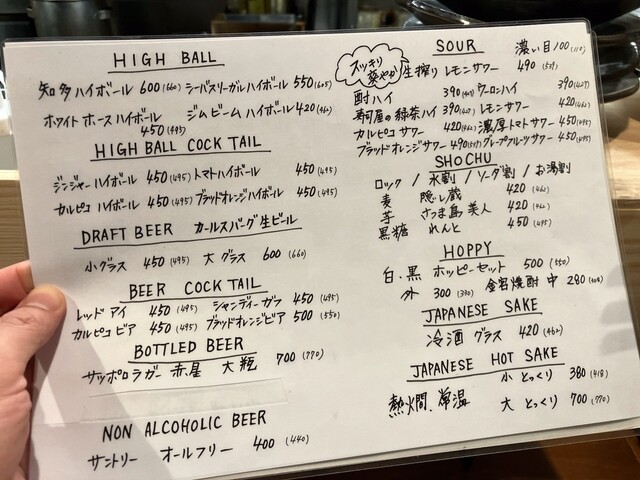 HIGH BALL
知多ハイボール 600(660) シーバスリーガルハイボール 550(605)
ホワイトホースハイボール 450(495) ジムビームハイボール 420(462)
HIGH BALL COCK TAIL
ジンジャーハイボール 450(495) トマトハイボール 450(495)
カルピコ ハイボール 450(495) ブラッドオレンジハイボール 450(495)
DRAFT BEER カールスバーグ生ビール
小グラス 450(495) 大グラス 600(660)
BEER COCK TAIL
レッド アイ 450(495) シャンディーガフ 450(495)
カルピコ ビア 450(495) ブラッドオレンジビア 500(550)
BOTTLED BEER
サッポロラガー 赤星 大瓶 700(770)
NON ALCOHOLIC BEER
サントリー オールフリー 400(440)
SOUR 濃い目100(110)
スッキリ爽やか 生搾りレモンサワー 490(539)
酎ハイ 390(429) ウーロンハイ 390(429)
寿司屋の緑茶ハイ 390(429) レモンサワー 420(462)
カルピコサワー 420(462) 濃厚トマトサワー 450(495)
ブラッドオレンジサワー 490(539) グレープフルーツサワー 450(495)
SHOCHU
ロック / 水割 / ソーダ割 / お湯割
麦 隠し蔵 420(462)
芋 さつま島美人 420(462)
黒糖 れんと 450(495)
HOPPY
白、黒 ホッピーセット 500(550)
外 300(330) 金宮焼酎 中 280(308)
JAPANESE SAKE
冷酒 グラス 420(462)
JAPANESE HOT SAKE
熱燗、常温 小 とっくり 380(418)
大 とっくり 700(770)